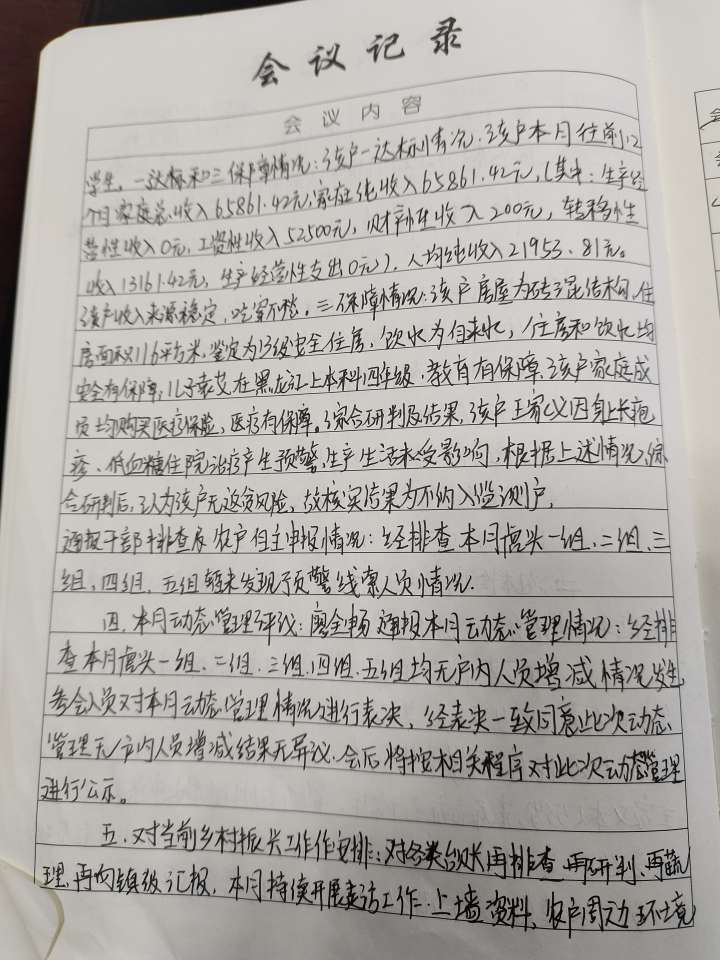 会议记录
会议内容
学生。一达标和三保障情况：该户一达标情况：该户本月往前12
个月家庭总收入65861.42元，家庭纯收入65861.42元，（其中：生产经
营性收入0元，工资性收入52500元，财产性收入200元，转移性
收入13161.42元，生产经营性支出0元），人均纯收入21953.81元。
该户收入来源稳定，吃穿不愁。三保障情况：该户房屋为砖混结构，住
房面积116平方米，鉴定为B级安全住房，饮水为自来水，住房和饮水均
安全有保障；儿子在黑龙江上本科四年级，教育有保障；该户家庭成
员均购买医疗保险，医疗有保障。综合研判及结果，该户王家义因身上长疱
疹、低血糖住院治疗产生预警，生产生活未受影响，根据上述情况，综
合研判后，认为该户无返贫风险，故核实结果为不纳入监测户，
通报干部排查及农户自主申报情况：经排查本月虎头一组、二组、三
组、四组、五组暂未发现预警线索人员情况。
四、本月动态管理评议：廖全畅通报本月动态管理情况：经排
查本月虎头一组、二组、三组、四组、五组均无户内人员增减情况发生
参会人员对本月动态管理情况进行表决，经表决一致同意此次动态
管理无户内人员增减结果无异议，会后将按相关程序对此次动态管理
进行公示。
五、对当前乡村振兴工作作安排：对各类台账再排查、再研判、再梳
理，再向镇级汇报，本月持续开展走访工作，上墙资料，农户周边环境